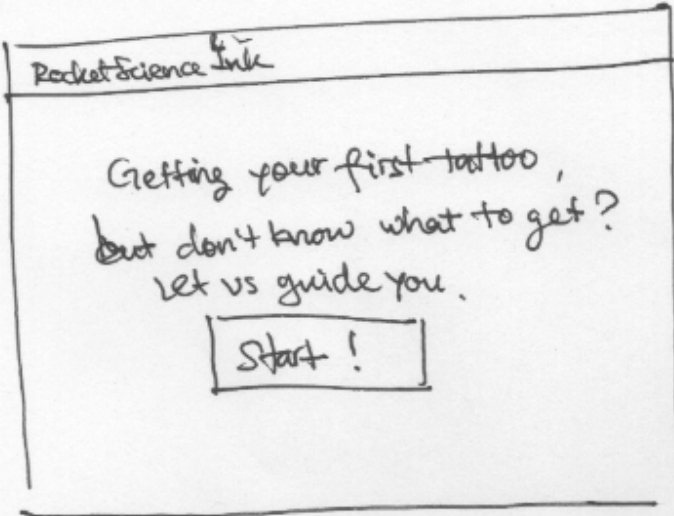 RocketScience Ink
Getting your first tattoo,
but don't know what to get?
Let us guide you.
Start!